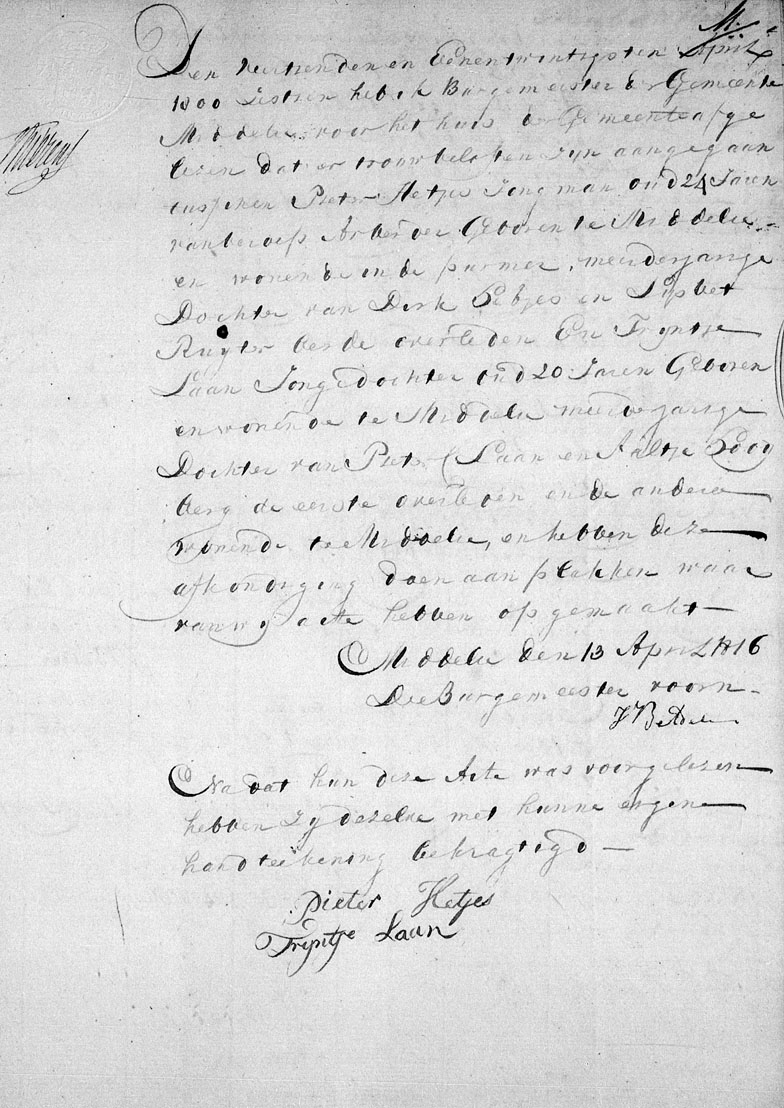 Den veertienden en Eenentwintigsten April
1800 Zestien heb ik Burgemeester der Gemeente
Middelie voor het huis der Gemeente afge
lezen dat er trouwbeloften zijn aangegaan
tusschen Pieter Hetjes Jongman oud 24 Jaren
van beroep Arbeider Geboren te Middelie
en wonende in de purmer, meerderjarige
Dochter van Derk Hetjes en Lijsbet
Ruyter beide overleden En Tryntje
Laan Jongedochter oud 20 Jaren Geboren
en wonende te Middelie meerderjarige
Dochter van Pieter Laan en Aaltje
berg de eerste overleden en de andere
wonende te Middelie, en hebben deze
afkondiging doen aan plakken waar
van wij acte hebben op gemaakt
Middelie den 13 April 1816
De Burgemeester voorn

Na dat hun deze Acte was voorgelezen
hebben zij dezelve met hunne eigene
handteekening bekragtigd
Pieter Hetjes
Tryntje Laan